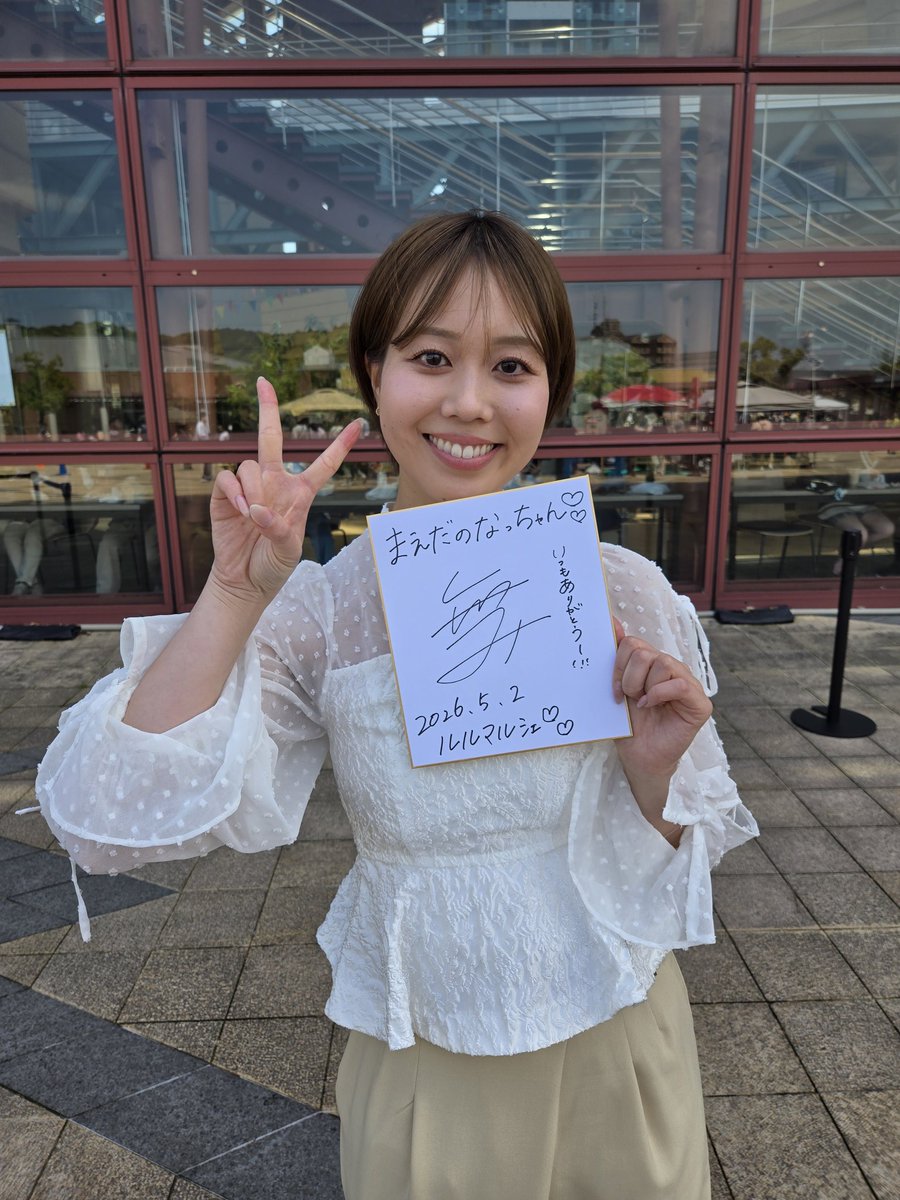 まえだのなっちゃん♡♡
いつもありがとうー!!!
2026.5.2
ルルマルシェ♡♡